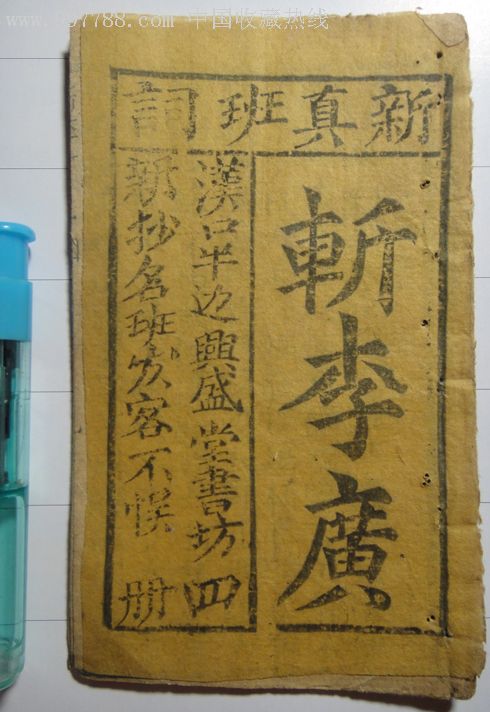 www.997788.com 中国收藏热线
新真班词
斬李廣
漢口半边興盛堂書坊
新抄名班发客不悮
四册